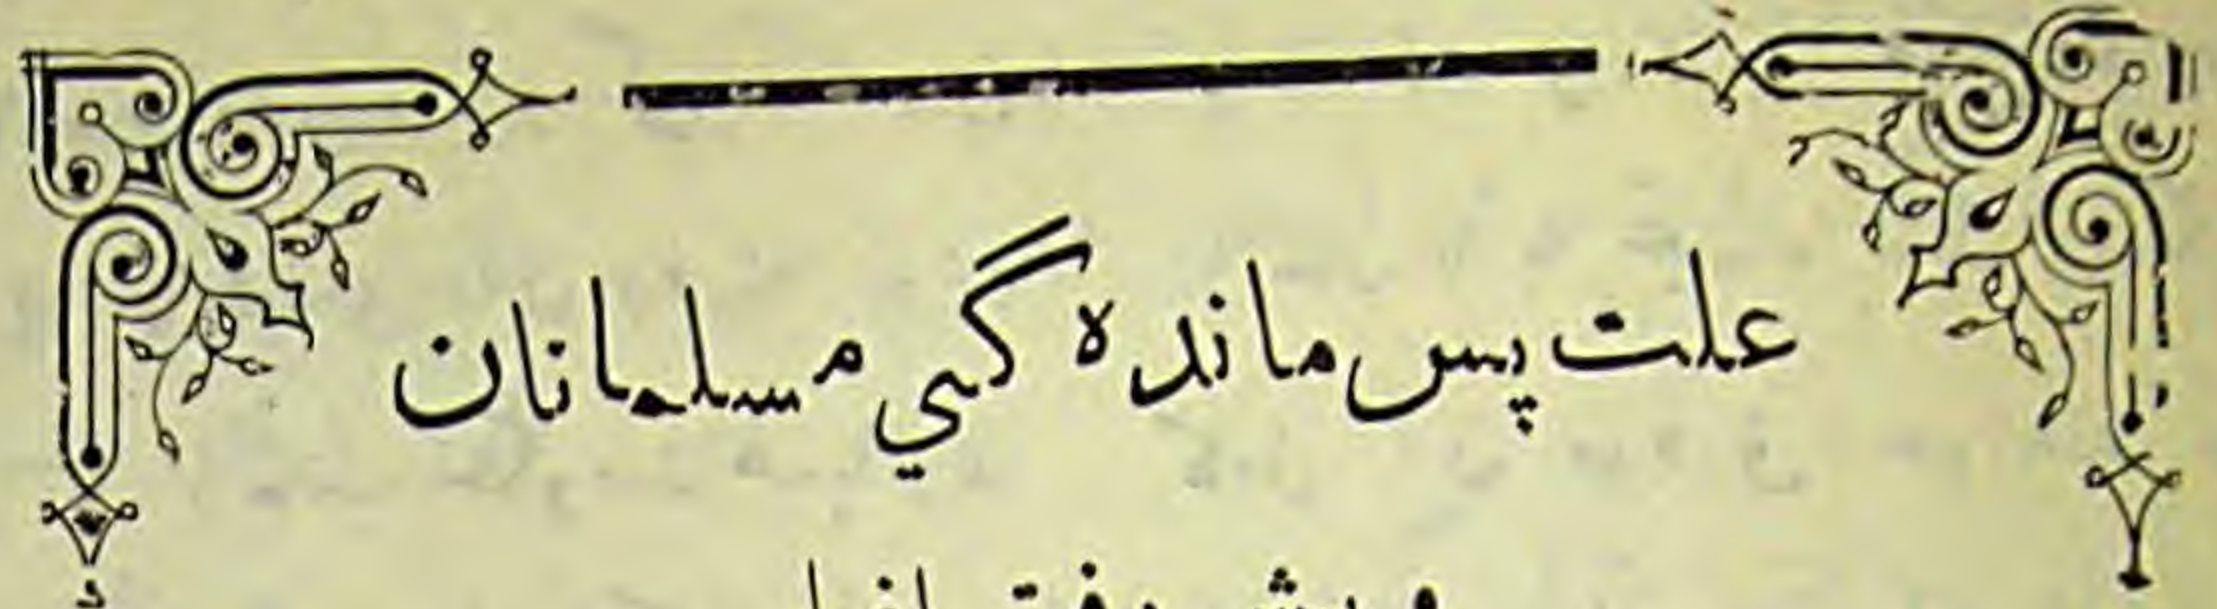 علت پس مانده گي مسلمانان